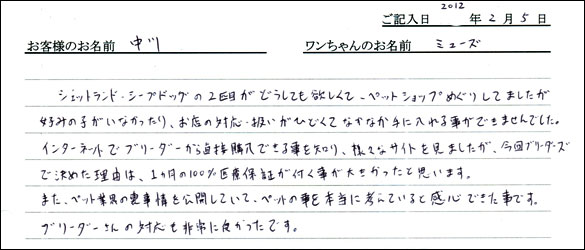 ご記入日 2012 年 2 月 5 日
お客様のお名前 中川 ワンちゃんのお名前 ミューズ
シェットランド・シープドッグの2匹目がどうしても欲しくて、ペットショップめぐりしてましたが
好みの子がいなかったり、お店の対応・扱いがひどくてなかなか手に入れる事ができませんでした。
インターネットでブリーダーから直接購入できる事を知り、様々なサイトを見ましたが、今回ブリーダーズ
で決めた理由は、1ヵ月の100%医療保証が付く事が大きかったと思います。
また、ペット業界の裏事情を公開していて、ペットの事を本当に考えていると感心できた事です。
ブリーダーさんの対応も非常に良かったです。